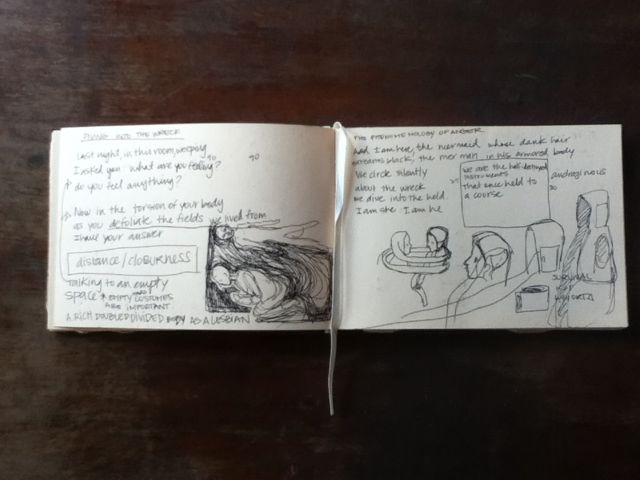 DIVING INTO THE WRECK
Last night, in this room, weeping
I asked you what are you feeling?
do you feel anything?
90
90
Now in the torsion of your body
as you defoliate the fields we lived from
I have your answer
distance/
talking to an empty
space
EMPTY COSTUMES
ARE IMPORTANT
A RICH DOUBLED DIVIDED BODY AS A LESBIAN
THE PHENOMENOLOGY OF ANGER
And I am here, the mermaid whose dark hair
streams black, the merman in his armored body
We circle silently
about the wreck
we dive into the hold.
I am she: I am he
we are the half-destroyed
instruments
that once held to
a course
androginous
SURVIVAL